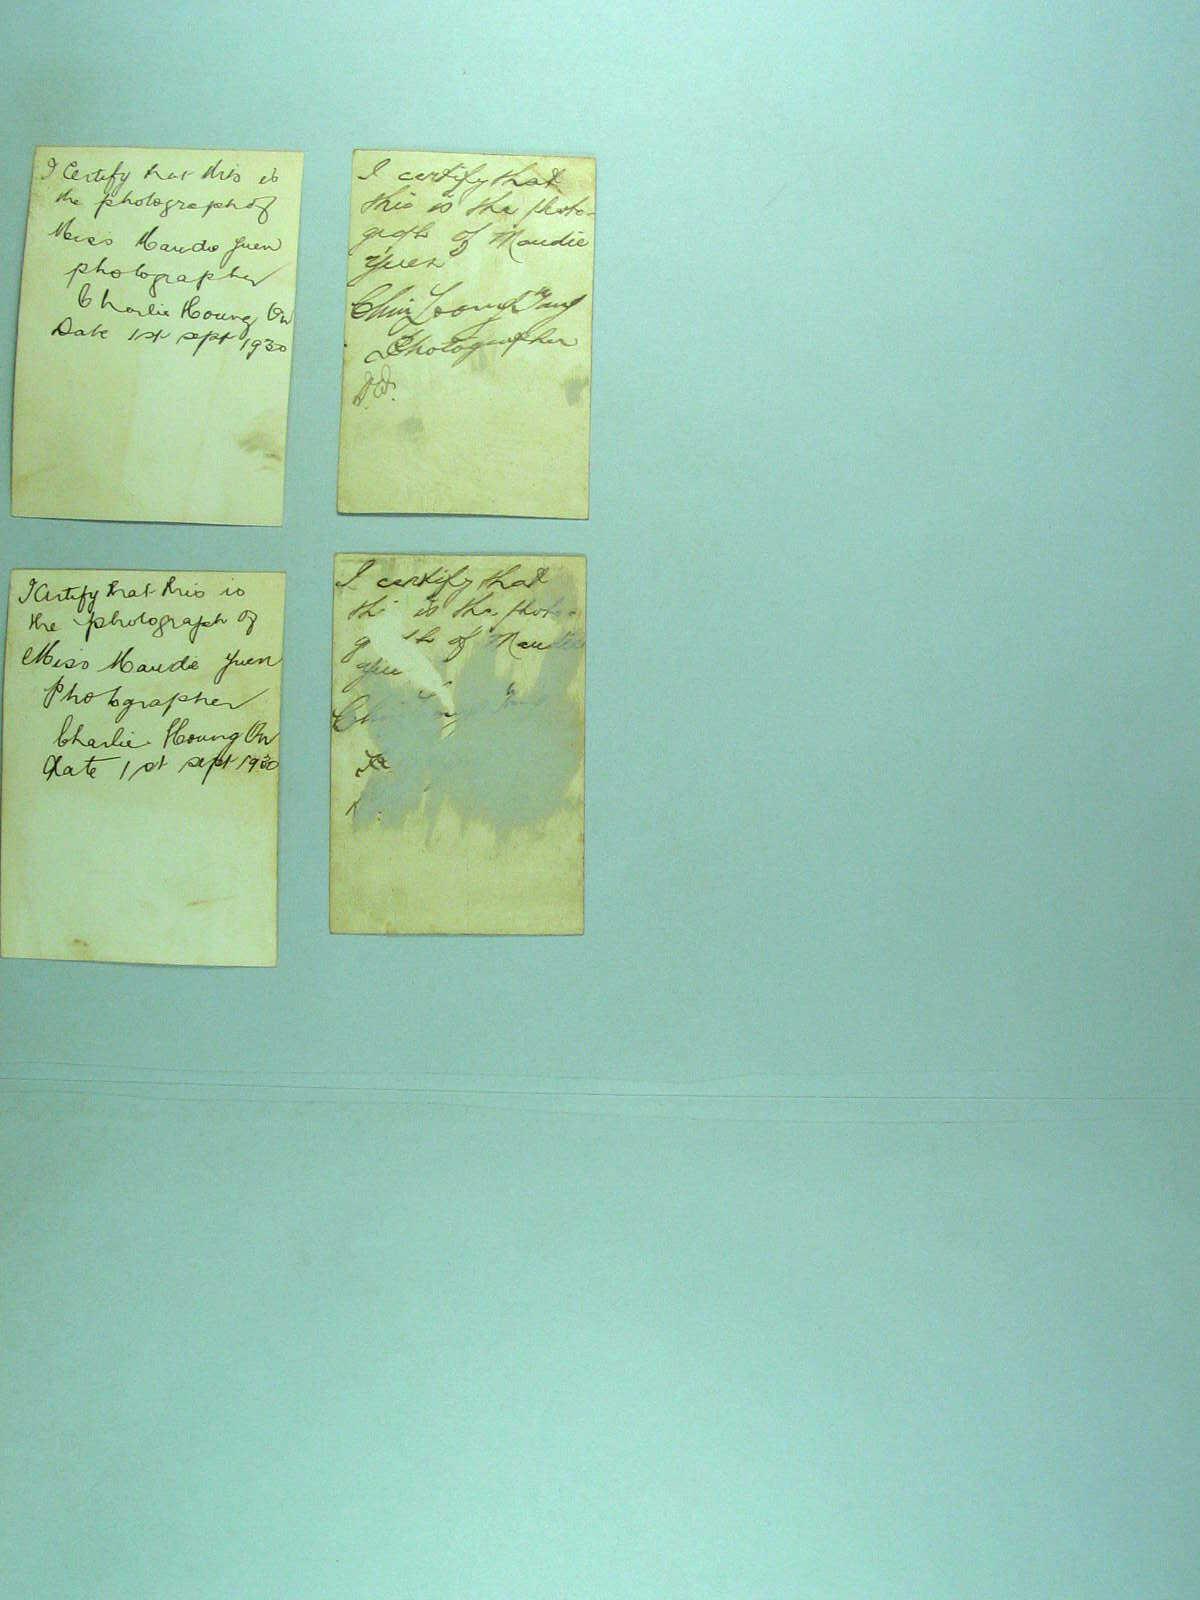 I Certify that this is
the photograph of
Miss Maudie Yuen
photographer
Charlie Houng On
Date 1st sept 1930
I certify that
this is the photo-
graph of Maudie
Yuen
Photographer
I Certify that this is
the photograph of
Miss Maudie Yuen
Photographer
Charlie Houng On
Date 1st sept 1930
I certify that
is the photo-
of Maudie